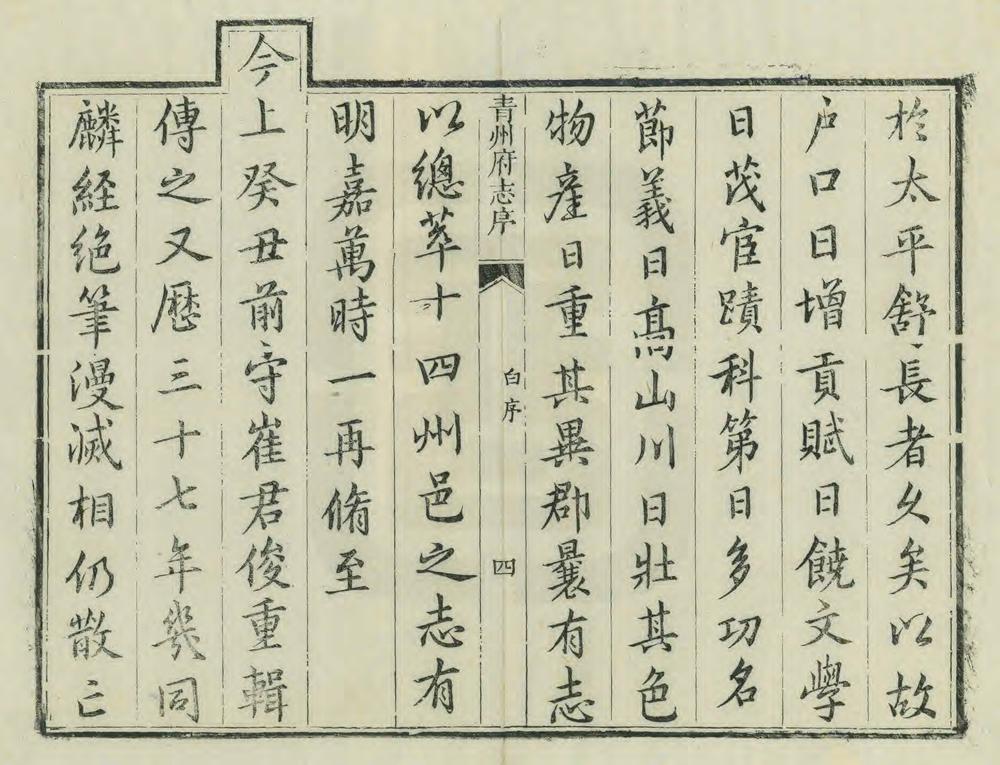 於太平舒長者久矣以故
戶口日增貢賦日饒文學
日茂宦蹟科第日多功名
節義日高山川日壯其色
物產日重其異郡曩有志
青州府志序
白序
四
以總萃十四州邑之志有
明嘉萬時一再脩至
今上癸丑前守崔君俊重輯
傳之又歷三十七年幾同
麟經絕筆漫滅相仍散亡